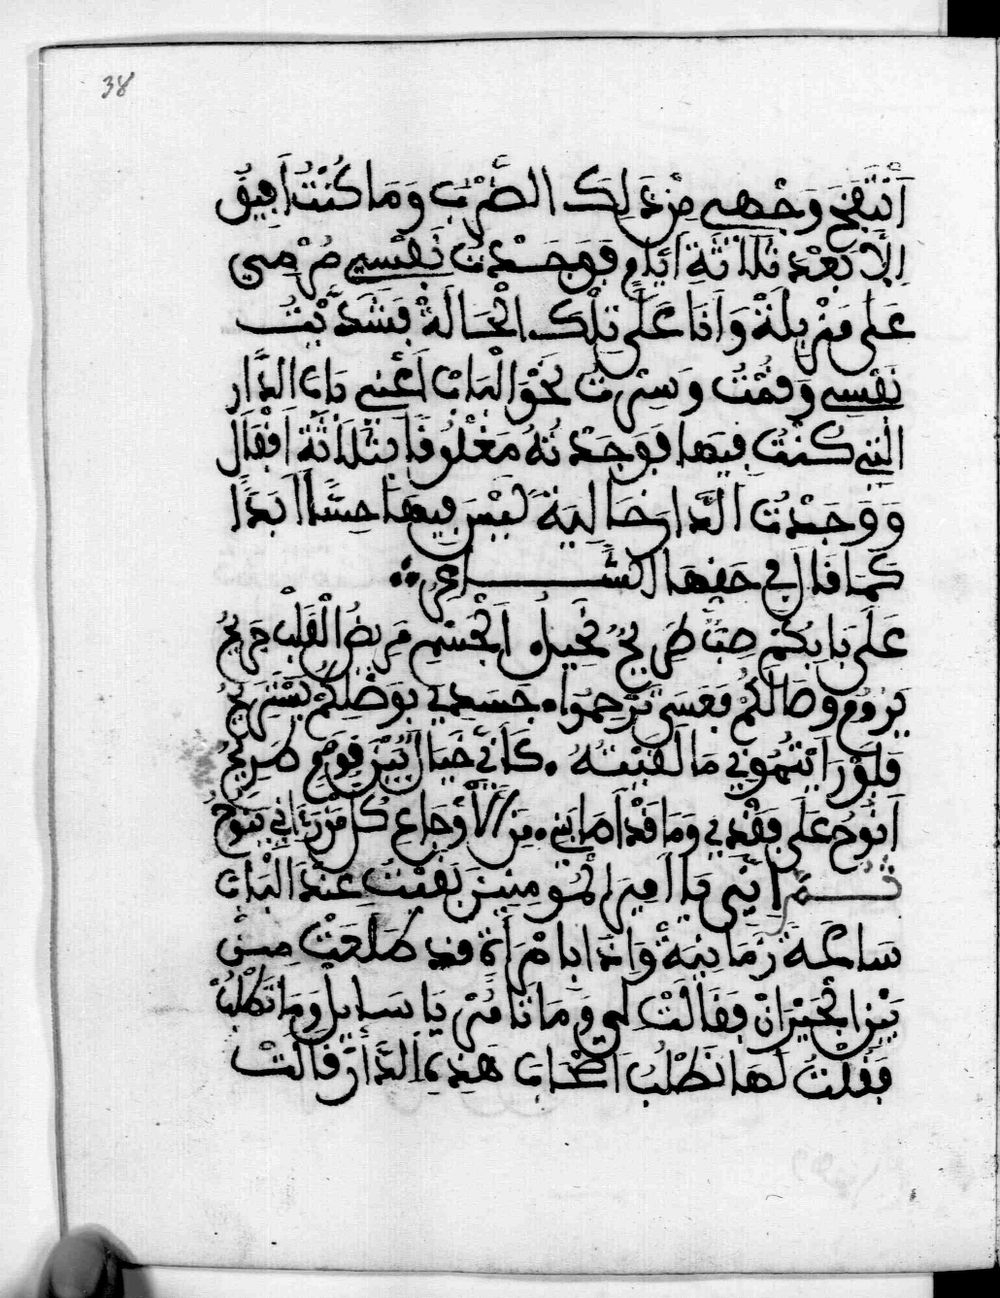 38
أنتفخ وجهي من ذلك الضرب وما كنت أفيق
إلا بعد ثلاثة أيام فوجدت نفسي مرمي
على مزبلة وأنا على تلك الحالة فشديت
نفسي وقمت وسرت نحو الباب أعني باب الدار
التي كنت فيها فوجدته مغلوقا بثلاثة أقفال
ووجدت الدار خالية ليس فيها حسا أبدا
كما قال في حقها الشاعر
على بابكم صب طريح نحيل الجسم مريض القلب جريح
يروم وصالكم فعسى ترحموا جسدي بوصلكم يستريح
فلو رأيتموني ما لقيته كأني خيال بين قوم طريح
أنوح على فقدي وما قد أصابني من الأوجاع كل من رءاني ينوح
ثم إني يا أمير المومنين بقيت عند الباب
ساعة زمانية وإذا بامرأة قد طلعت من
بين الجيران فقالت لي وما تامر يا سايل وما تطلب
فقلت لها نطلب أصحاب هذه الدار قالت